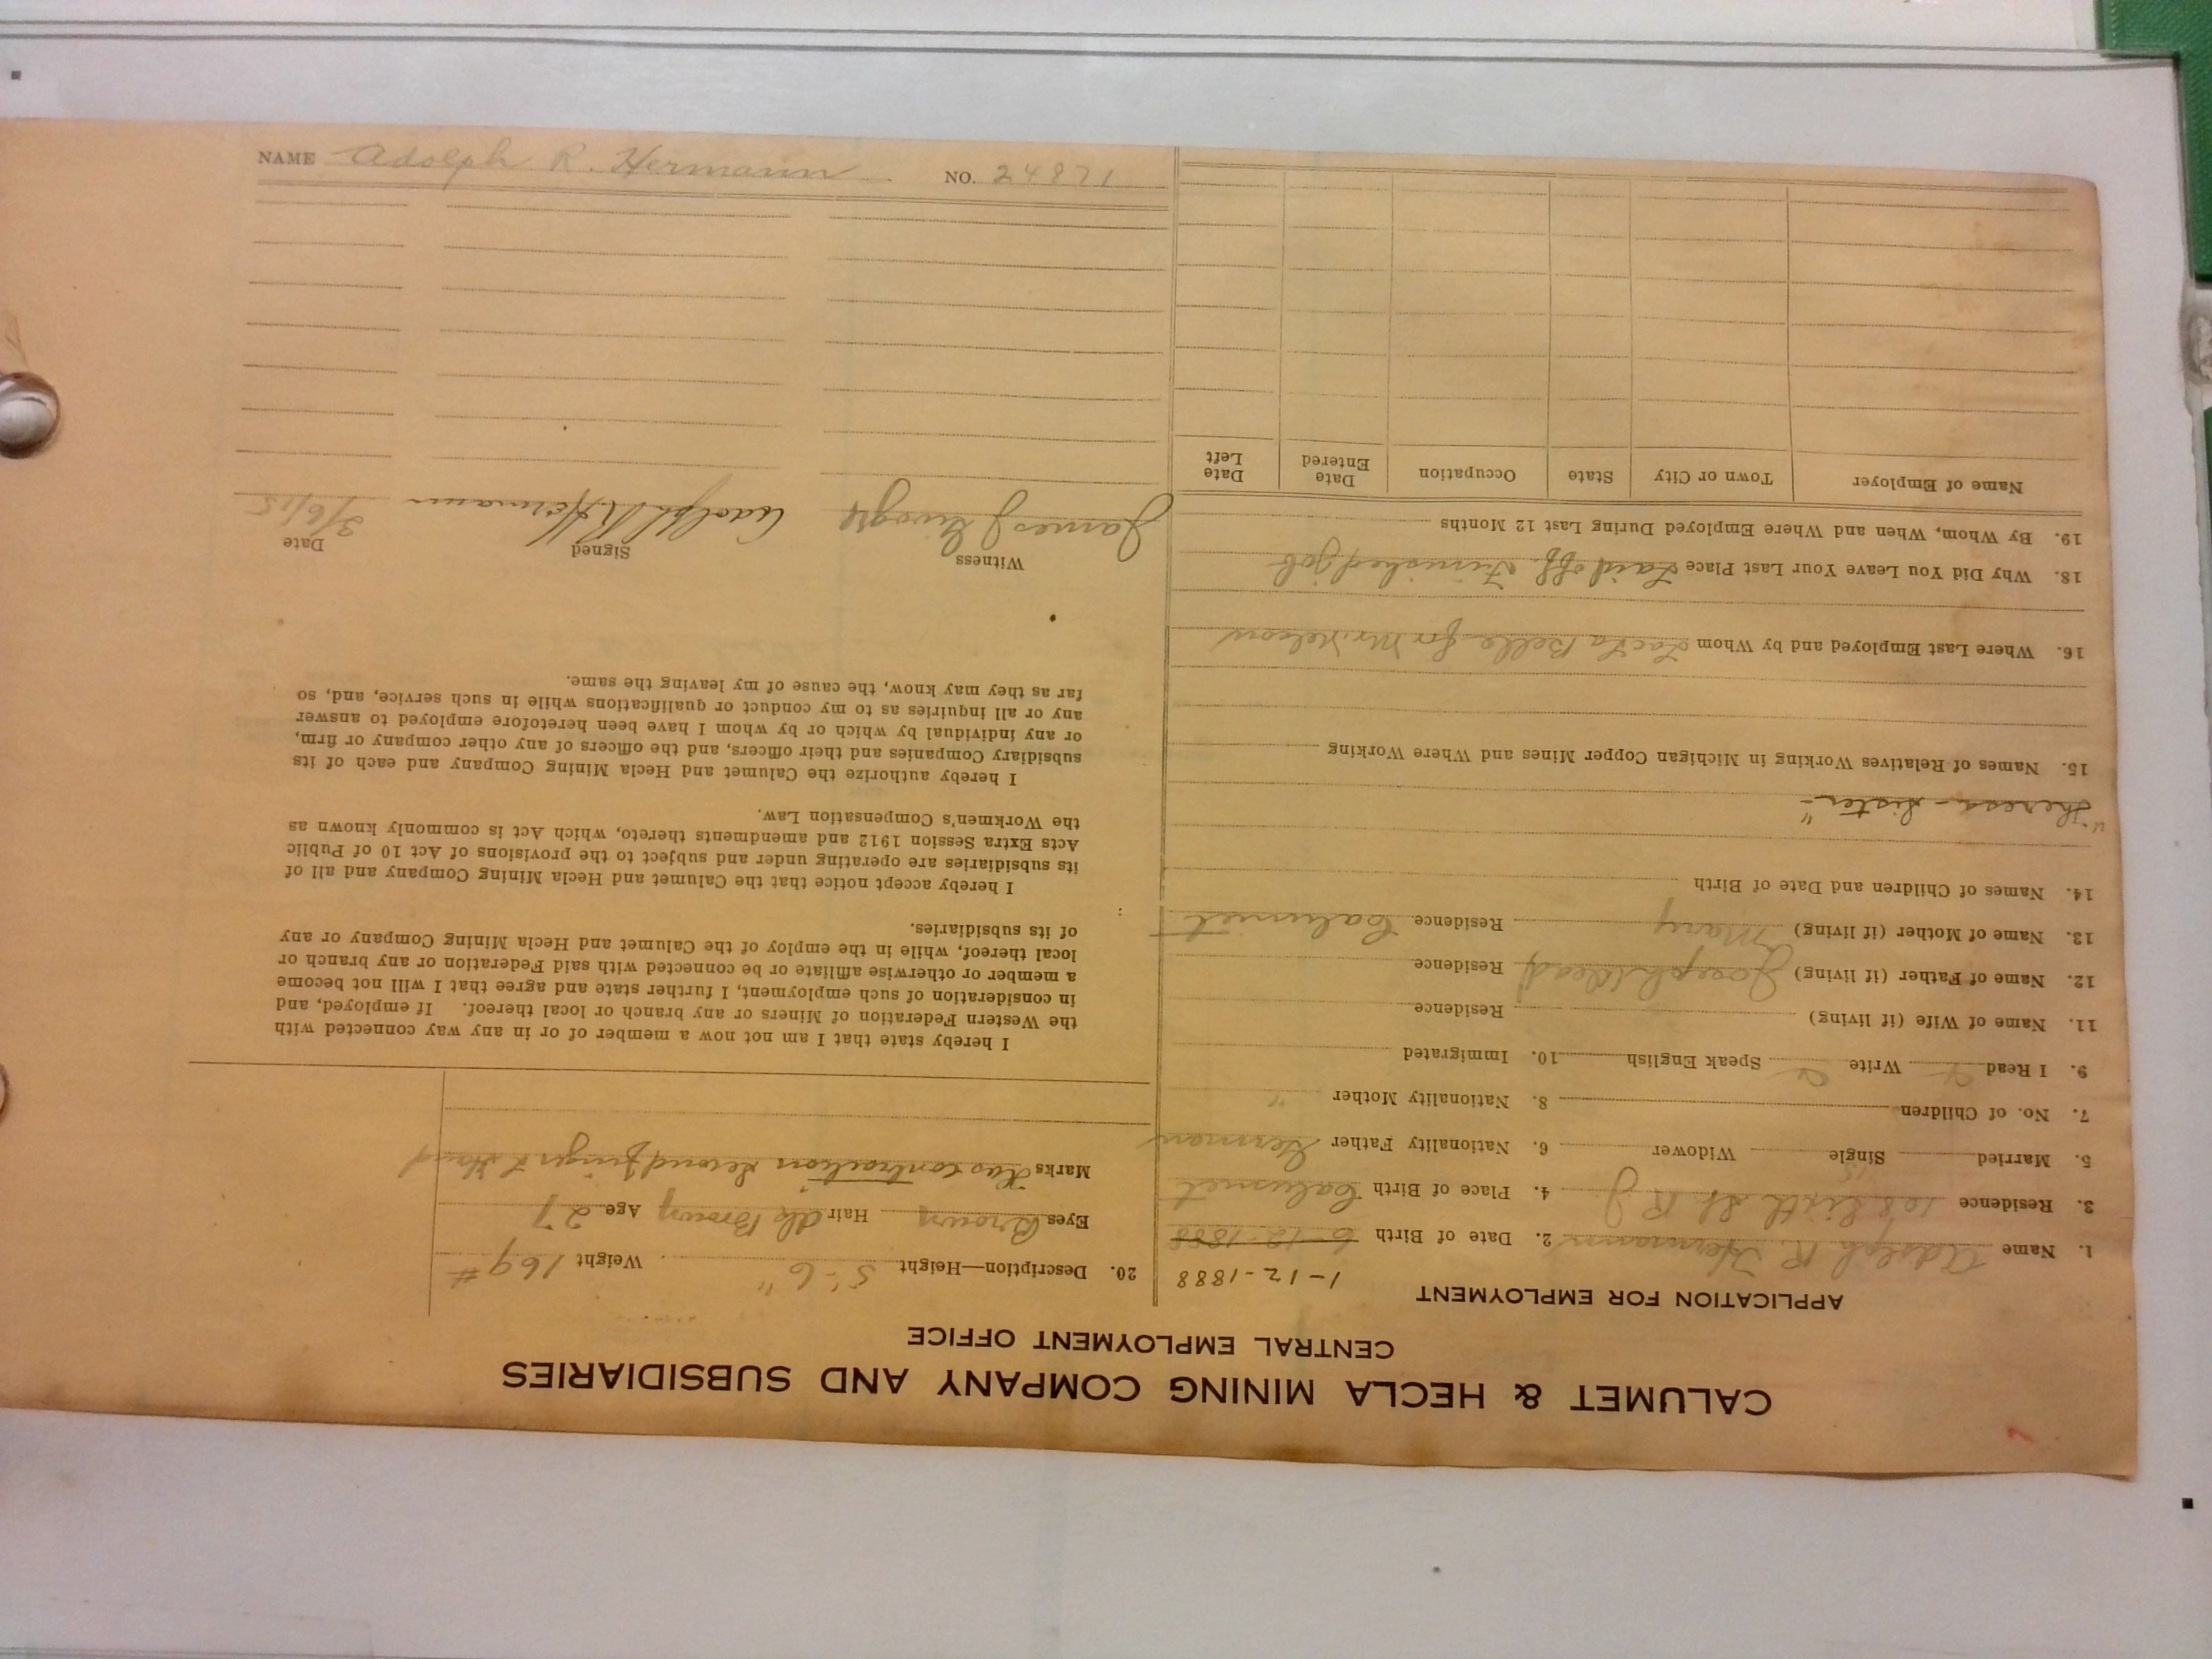 CALUMET & HECLA MINING COMPANY AND SUBSIDIARIES
CENTRAL EMPLOYMENT OFFICE
APPLICATION FOR EMPLOYMENT
1-12-1888
1. Name Adolph R. Hermann 2. Date of Birth 6-12-1888
3. Residence 108 Sixth St R J 4. Place of Birth Calumet
5. Married Single Widower 6. Nationality Father German
7. No. of Children 8. Nationality Mother "
9. I Read Write Speak English 10. Immigrated
11. Name of Wife (if living) Residence
12. Name of Father (if living) Joseph (dead) Residence
13. Name of Mother (if living) Mary Residence Calumet
14. Names of Children and Date of Birth
"Theresa - Sister - "
15. Names of Relatives Working in Michigan Copper Mines and Where Working
16. Where Last Employed and by Whom Lac La Belle for Mr. Nelson
18. Why Did You Leave Your Last Place Laid off. Finished job
19. By Whom, When and Where Employed During Last 12 Months
Name of Employer Town or City State Occupation Date Entered Date Left
20. Description—Height 5'-6" Weight 169 #
Eyes Brown Hair dk Brown Age 27
Marks Has contraction second finger L Hand
I hereby state that I am not now a member of or in any way connected with
the Western Federation of Miners or any branch or local thereof. If employed, and
in consideration of such employment, I further state and agree that I will not become
a member or otherwise affiliate or be connected with said Federation or any branch or
local thereof, while in the employ of the Calumet and Hecla Mining Company or any
of its subsidiaries.
I hereby accept notice that the Calumet and Hecla Mining Company and all of
its subsidiaries are operating under and subject to the provisions of Act 10 of Public
Acts Extra Session 1912 and amendments thereto, which Act is commonly known as
the Workmen's Compensation Law.
I hereby authorize the Calumet and Hecla Mining Company and each of its
subsidiary Companies and their officers, and the officers of any other company or firm,
or any individual by which or by whom I have been heretofore employed to answer
any or all inquiries as to my conduct or qualifications while in such service, and, so
far as they may know, the cause of my leaving the same.
Witness Signed Date
James J Adolph R. Hermann 3/6/15
NAME Adolph R. Hermann NO. 24871